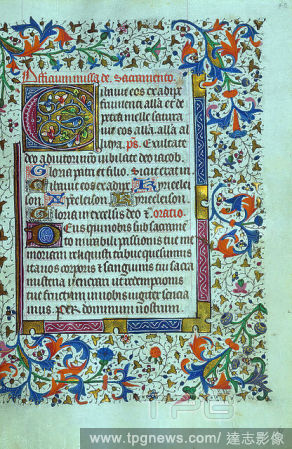 Officium misse de Sacramento
Cibavit eos ex adipe
frumenti alla et de
petra melle satura
vit eos alla alla al
leluya. ps. Exultate
deo adiutorio iubilate deo iacob.
Gloria patri et filio. Sicut erat in
Cibavit eos ex adipe Kyrieeleison
Gloria in excelsis deo Oratio.
Deus qui nobis sub sacrame
passionis tue me
moriam reliquisti tribue quesumus
nos corporis et sanguinis tui sacra
misteria venerari ut redemptionis
tue fructum in nobis iugiter sencia
mus. Per dominum nostrum
TPG
www.tpgnews.com / 達志影像